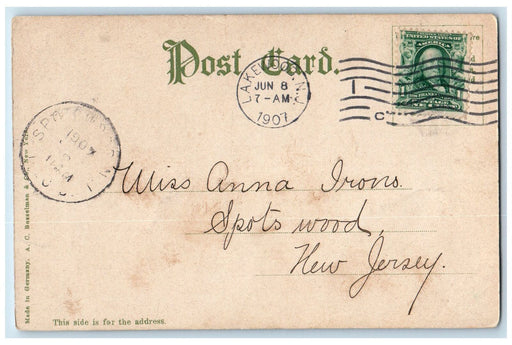 Post Card.
UNITED STATES OF
AMERICA
LAKEWOOD, N.J.
JUN 8
7-AM
1907
1907
Miss Anna Irons.
Spotswood,
New Jersey.
Made in Germany. A. C. Bosselman & Co., New York
This side is for the address.